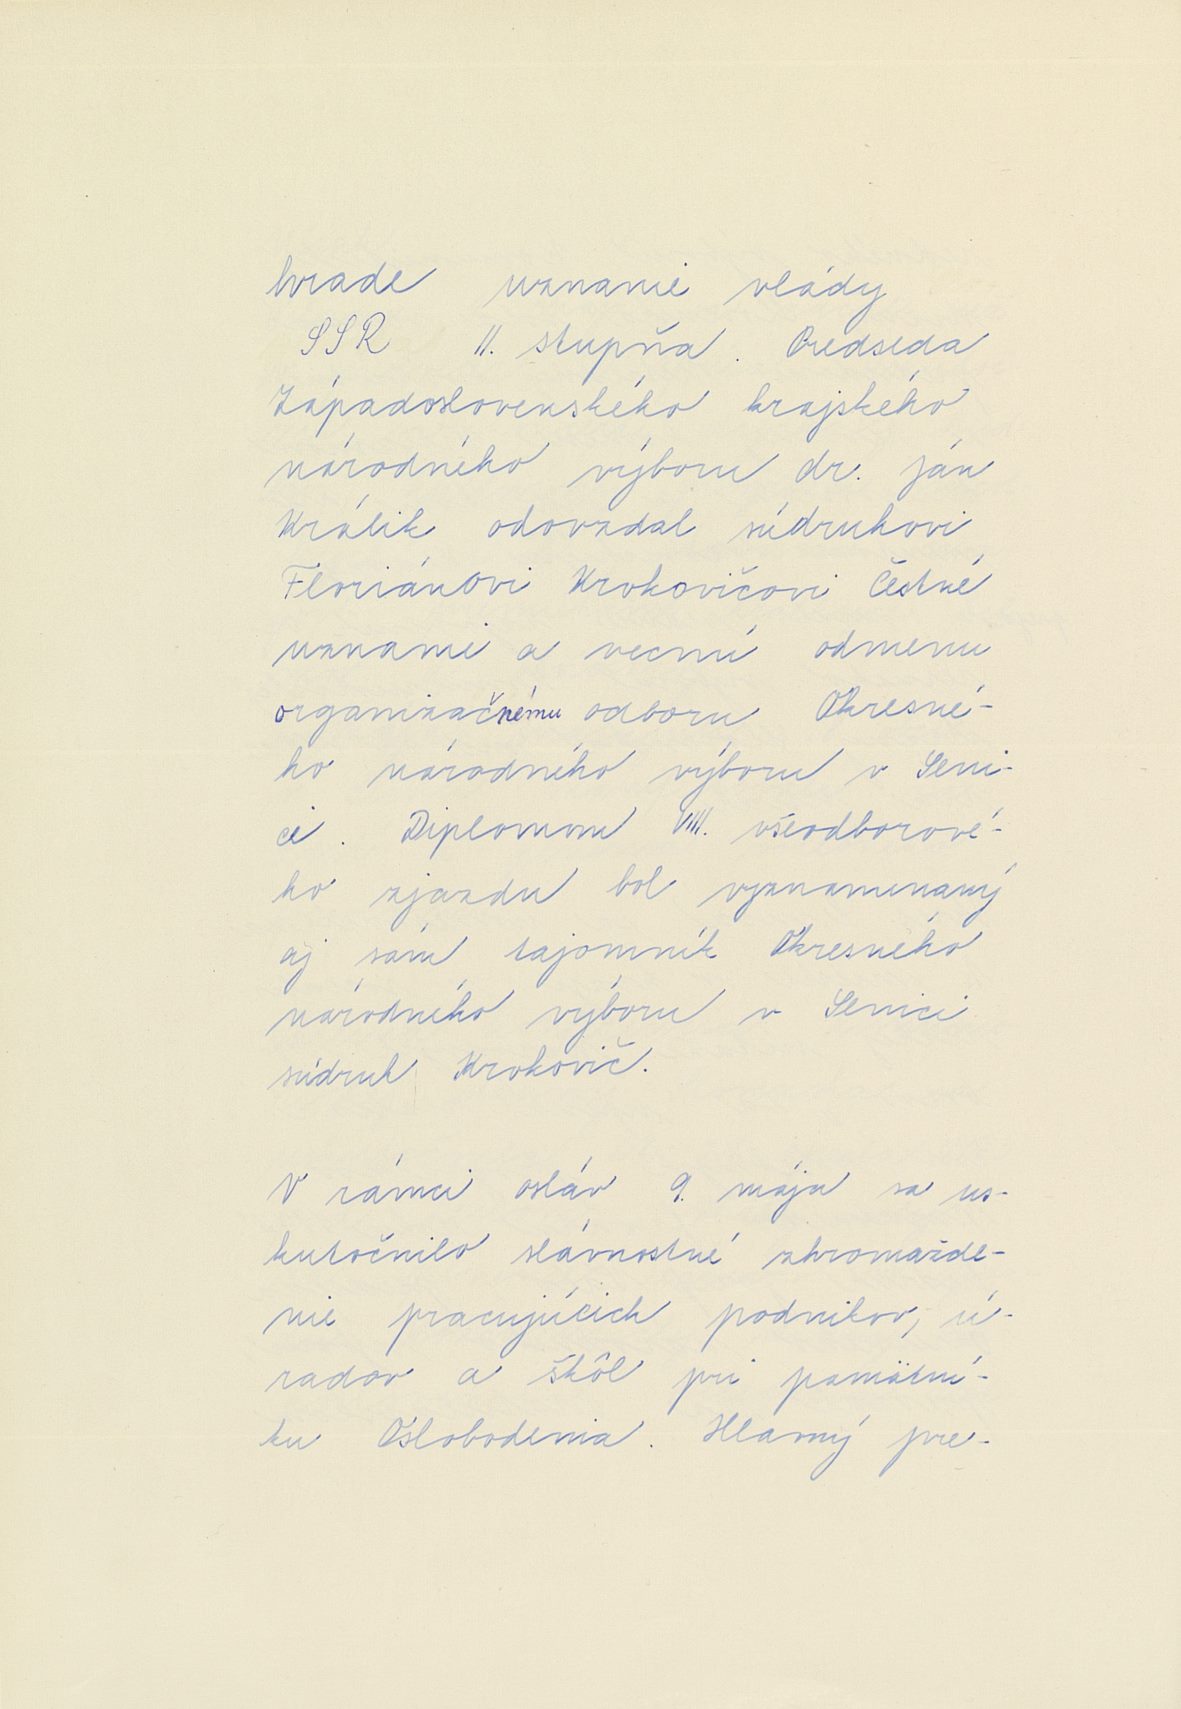 hrade uznanie vlády
SSR II. stupňa. Predseda
Západoslovenského krajského
národného výboru dr. Ján
Králik odovzdal súdruhovi
Floriánovi Krokovičovi Čestné
uznanie a vecnú odmenu
organizačnému odboru Okresné-
ho národného výboru v Seni-
ci. Diplomom VIII. všeodborové-
ho zjazdu bol vyznamenaný
aj sám tajomník Okresného
národného výboru v Senici
súdruh Krokovič.
V rámci osláv 9. mája sa us-
kutočnilo slávnostné zhromažde-
nie pracujúcich podnikov, ú-
radov a škôl pri pamätní-
ku Oslobodenia. Hlavný pre-